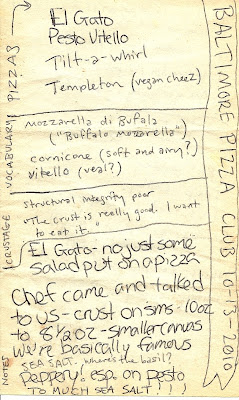 BALTIMORE PIZZA CLUB 10-13-2010
PIZZAS
El Gato
Pesto Vitello
Tilt-a-whirl
Templeton (vegan cheez)
VOCABULARY
mozzarella di Bufala
("Buffalo Mozzarella")
cornicone (soft and airy?)
vitello (veal?)
CRUSTAGE
structural integrity poor
"The crust is really good. I want
to eat it."
NOTES
El Gato - no just some
salad put on a pizza
Chef came and talked
to us - crust on sms - 10oz
to 8 1/2 oz - smaller canvas
we're basically famous
SEA SALT. where's the basil?
Peppery! esp. on pesto
TO MUCH SEA SALT!!!